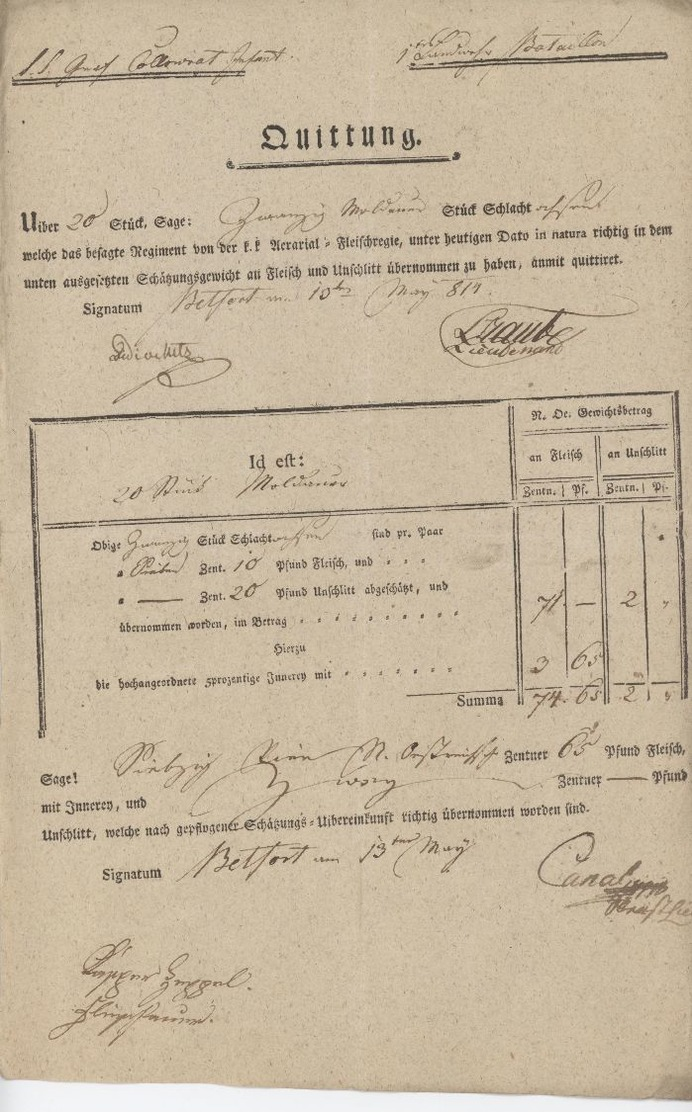 Graf Collowrat Infant.
1 Landwehr Bataillon
Quittung.
Uiber 20 Stück, Sage: Zwanzig Moldauer Stück Schlachtochsen
welche das besagte Regiment von der k. k Aerarial-Fleischregie, unter heutigen Dato in natura richtig in dem
unten ausgesetzten Schätzungsgewicht an Fleisch und Unschlitt übernommen zu haben, anmit quittiret.
Signatum Belfort am 10ten May 814.
Traube
Lieutenant
N. Oe. Gewichtsbetrag
Id est: an Fleisch an Unschlitt
20 Stück Moldauer Zentn. Pf. Zentn. Pf.
Obige Zwanzig Stück Schlachtochsen sind pr. Paar
" Sieben Zent. 10 Pfund Fleisch, und
" — Zent. 20 Pfund Unschlitt abgeschätzt, und
übernommen worden, im Betrag 71 — 2 "
Hierzu
die hochangeordnete 5prozentige Innerey mit 3 65
Summa 74. 65 2 "
Sage! Siebzig Vier N. Oestreichische Zentner 65 Pfund Fleisch,
mit Innerey, und Zwey Zentner — Pfund
Unschlitt, welche nach gepflogener Schätzungs-Uibereinkunft richtig übernommen worden sind.
Signatum Belfort am 13ten May
Canal